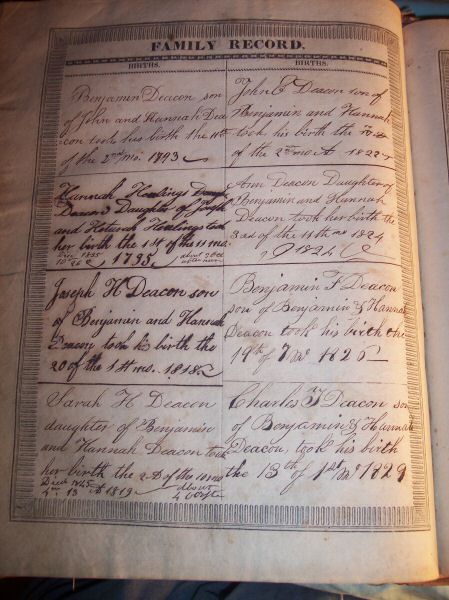 FAMILY RECORD.
BIRTHS.
Benjamin Deacon son
of John and Hannah Dea
con took his birth the 11th
of the 2nd mo. 1793
Hannah Healings
Deacon Daughter of Joseph
and Healings took
her birth the 1st of the 11 mo.
1795
Joseph H Deacon son
of Benjamin and Hannah
Deacon took his birth the
20 of the 1st mo. 1818
Sarah H Deacon
daughter of Benjamin
and Hannah Deacon took
her birth the 2d of the 10 mo
Died 1845
13 1819
about
4 oclock
BIRTHS.
John C Deacon son of
Benjamin and Hannah
took his birth the
of the 2nd mo 1822
Ann Deacon Daughter of
Benjamin and Hannah
Deacon took her birth the
3rd of the 11th mo 1824
1824
Benjamin F Deacon
son of Benjamin & Hannah
Deacon took his birth the
19th of 7 mo 1826
Charles F Deacon son
of Benjamin & Hannah
Deacon, took his birth
the 13th of 1st mo 1829